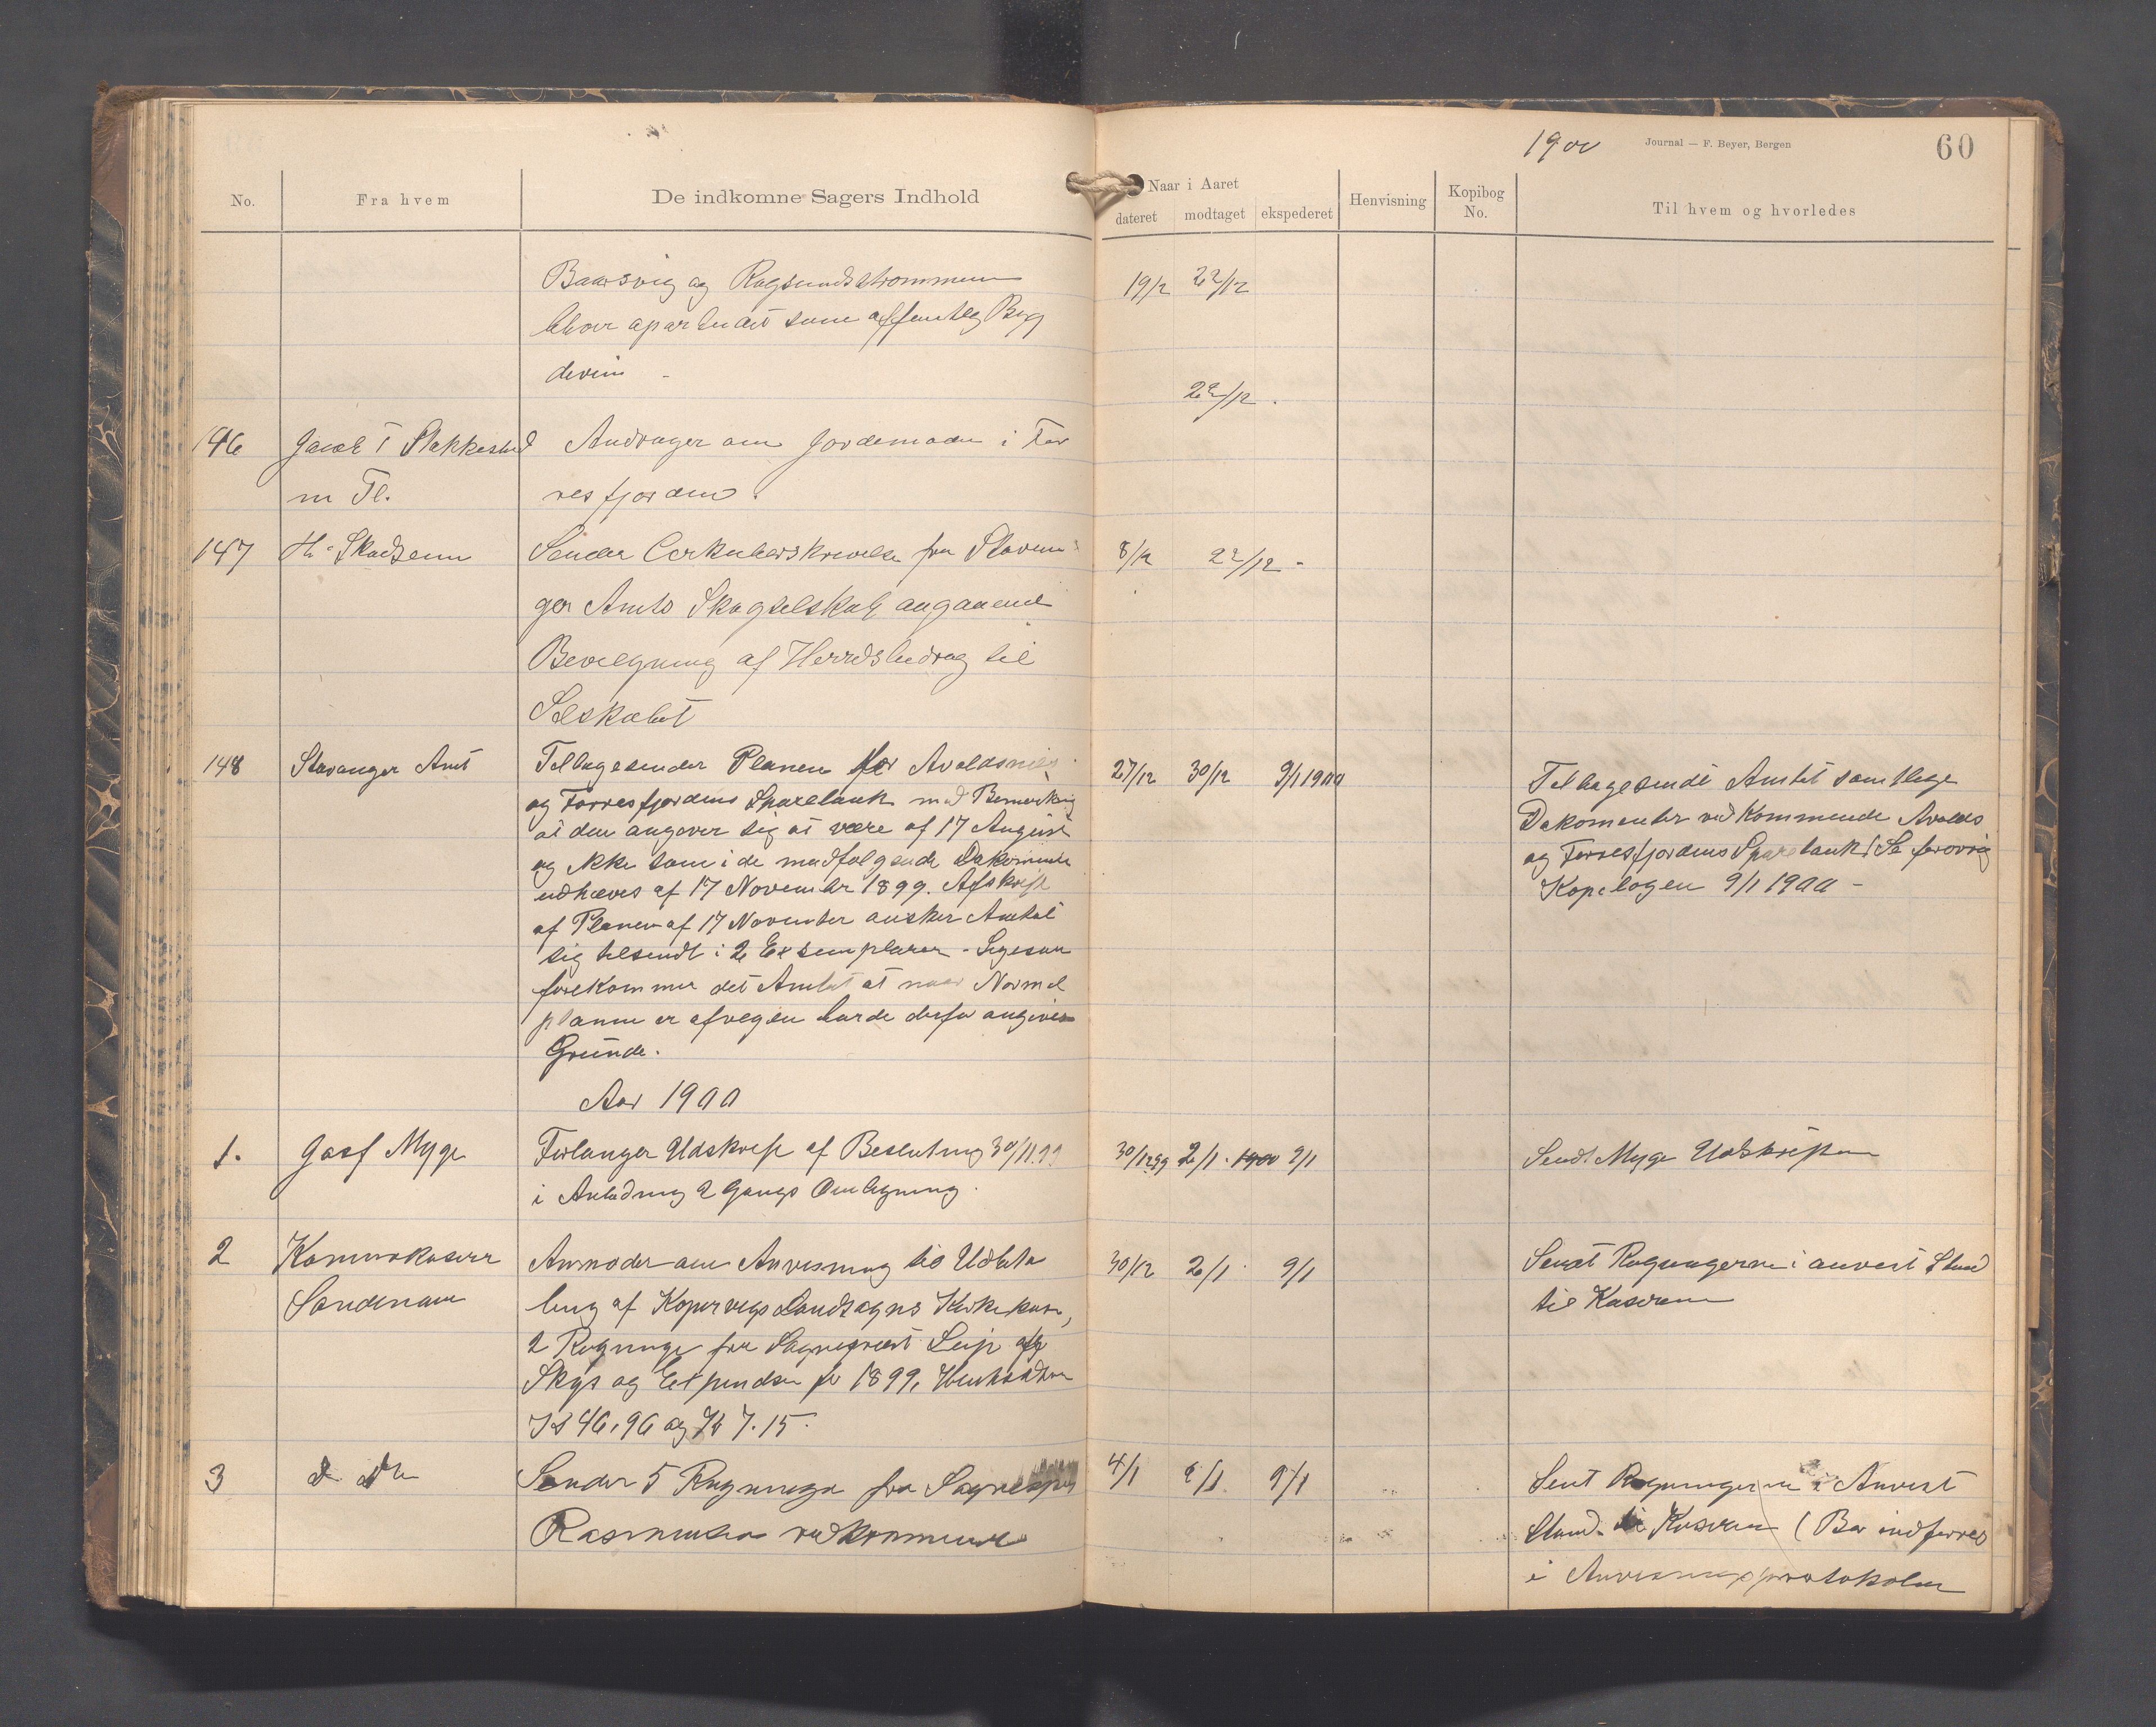 1900
Journal — F. Beyer, Bergen
60
No.
Fra hvem
De indkomne Sagers Indhold
Naar i Aaret
dateret
modtaget
ekspederet
Henvisning
Kopibog
No.
Til hvem og hvorledes
Baarsvig og Røgsundstrømmen 19/12 22/12
bliver oparbeidet som offentlig Byg
devei 22/12
146 Jacob T Stakkestad Andrager om Jordemoder i Før
m Fl. resfjorden.
147 Skadsem Sender Cirkulærskrivelse fra Stavan 8/12 22/12
ger Amts Skogselskab angaaende
Bevilgning af Herredsbidrag til
Selskabet
148 Stavanger Amt Tilbagesender Planen for Avaldsnes 27/12 30/12 9/1 1900 Tilbagesendt Amtet samtlige
og Førresfjordens Sparebank med Bemærkning Dokomenter vedkommende Avalds
at den angiver sig at være af 17 August og Førresfjordens Sparebank (Se forøvrig
og ikke som i de medfølgende Dokumenter Kopibogen 9/1 1900 -
udhæves af 17 November 1899. Afskrift
af Planen af 17 November ønsker Amtet
sig tilsendt i 2 Exsemplarer - Ligesom
forekommer det Amtet at naar Normal
planen er afvegen burde derfor angives
Grunde.
Aar 1900
1. Josef Myge Forlanger Udskrift af Beslutning 30/11.99 30/12 99 2/1 1900 9/1 Sendt Myge Udskriften
i Anledning 2 Gangs Omlegning.
2 Anmoder om Anvisning til Udbeta 30/12 2/1 9/1 Sendt Regningerne i anvist Stand
ling af Kopervigs Landsogns Kirkekasse, til Kasseren
2 Regninge fra Sogneprest
Skys og Expendser for 1899, Henholdsvis
Kr 46,96 og Kr 7.15.
3 Sender 5 Regninger fra 4/1 9/1 9/1 Sent Regningerne i Anvist
Rasmussen vedkommende Stand til Kasseren (Bør indførres
i Anvisningsprotokolen